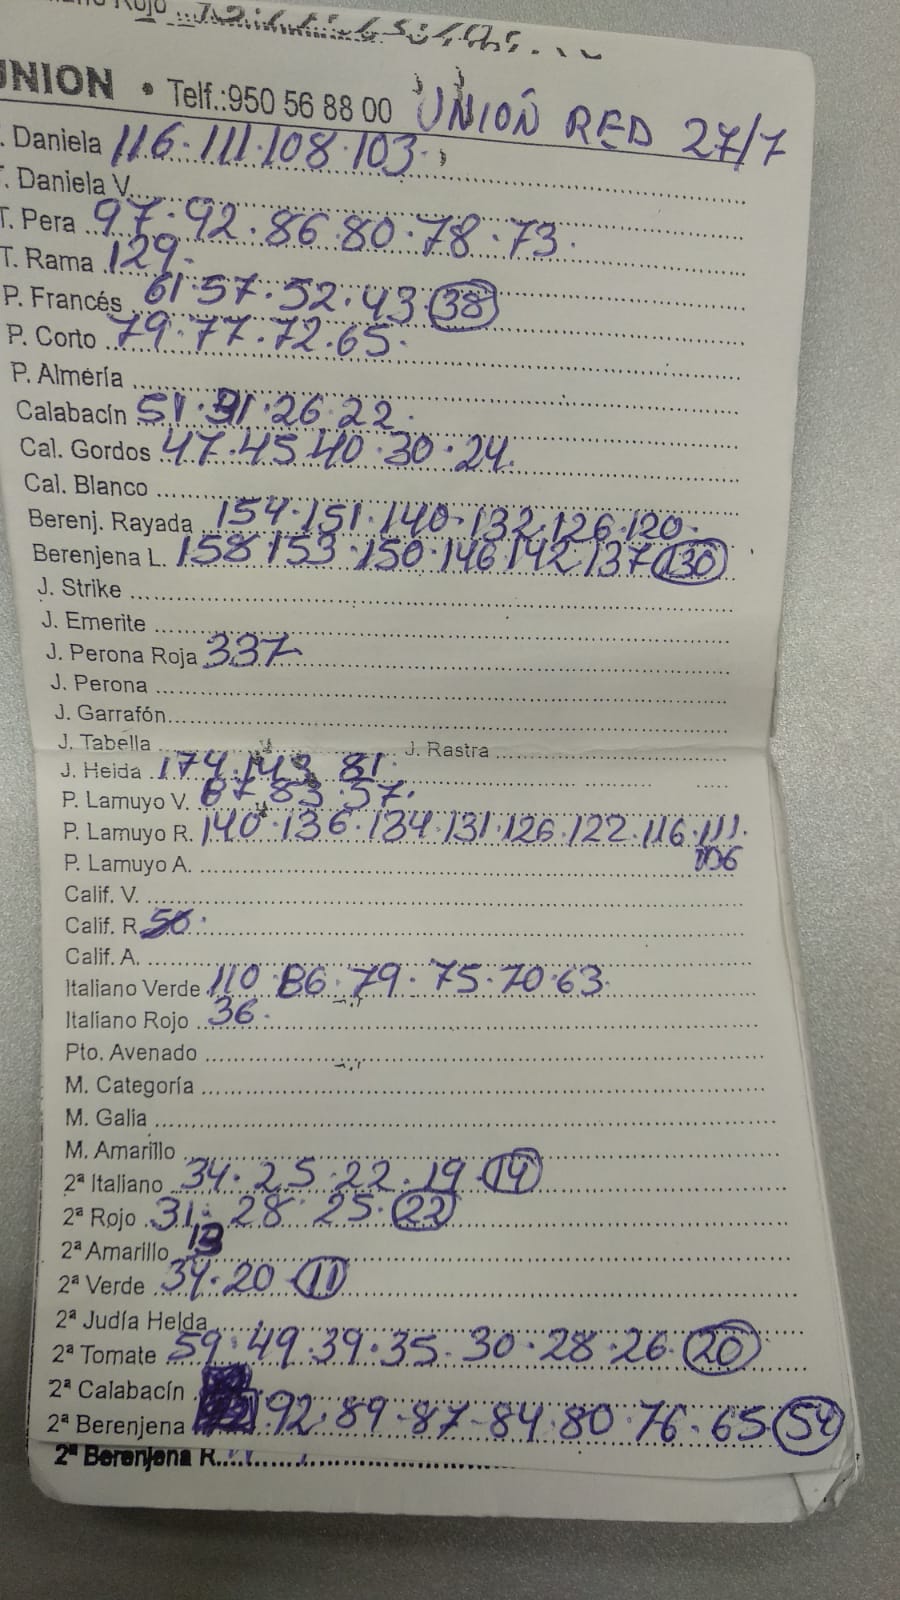 UNION • Telf.:950 56 88 00 UNION RED 27/7
T. Daniela 116·111·108·103·
T. Daniela V.
T. Pera 97·92·86·80·78·73·
T. Rama 129·
P. Francés 61·57·52·43·38
P. Corto 79·77·72·65·
P. Almería
Calabacín 51·31·26·22·
Cal. Gordos 47·45·40·30·24·
Cal. Blanco
Berenj. Rayada 154·151·140·132·126·120·
Berenjena L. 158·153·150·146·142·137·130
J. Strike
J. Emerite
J. Perona Roja 337
J. Perona
J. Garrafón
J. Tabella J. Rastra
J. Helda 174·143·81·
P. Lamuyo V. 87·83·57·
P. Lamuyo R. 140·136·134·131·126·122·116·111·
106
P. Lamuyo A.
Calif. V.
Calif. R. 50·
Calif. A.
Italiano Verde 110·86·79·75·70·63·
Italiano Rojo 36·
Pto. Avenado
M. Categoría
M. Galia
M. Amarillo
2ª Italiano 34·25·22·19·14
2ª Rojo 31·28·25·22
2ª Amarillo 13
2ª Verde 34·20·11
2ª Judía Helda
2ª Tomate 59·49·39·35·30·28·26·20
2ª Calabacín
2ª Berenjena 92·89·87·84·80·76·65·54
2ª Berenjena R.